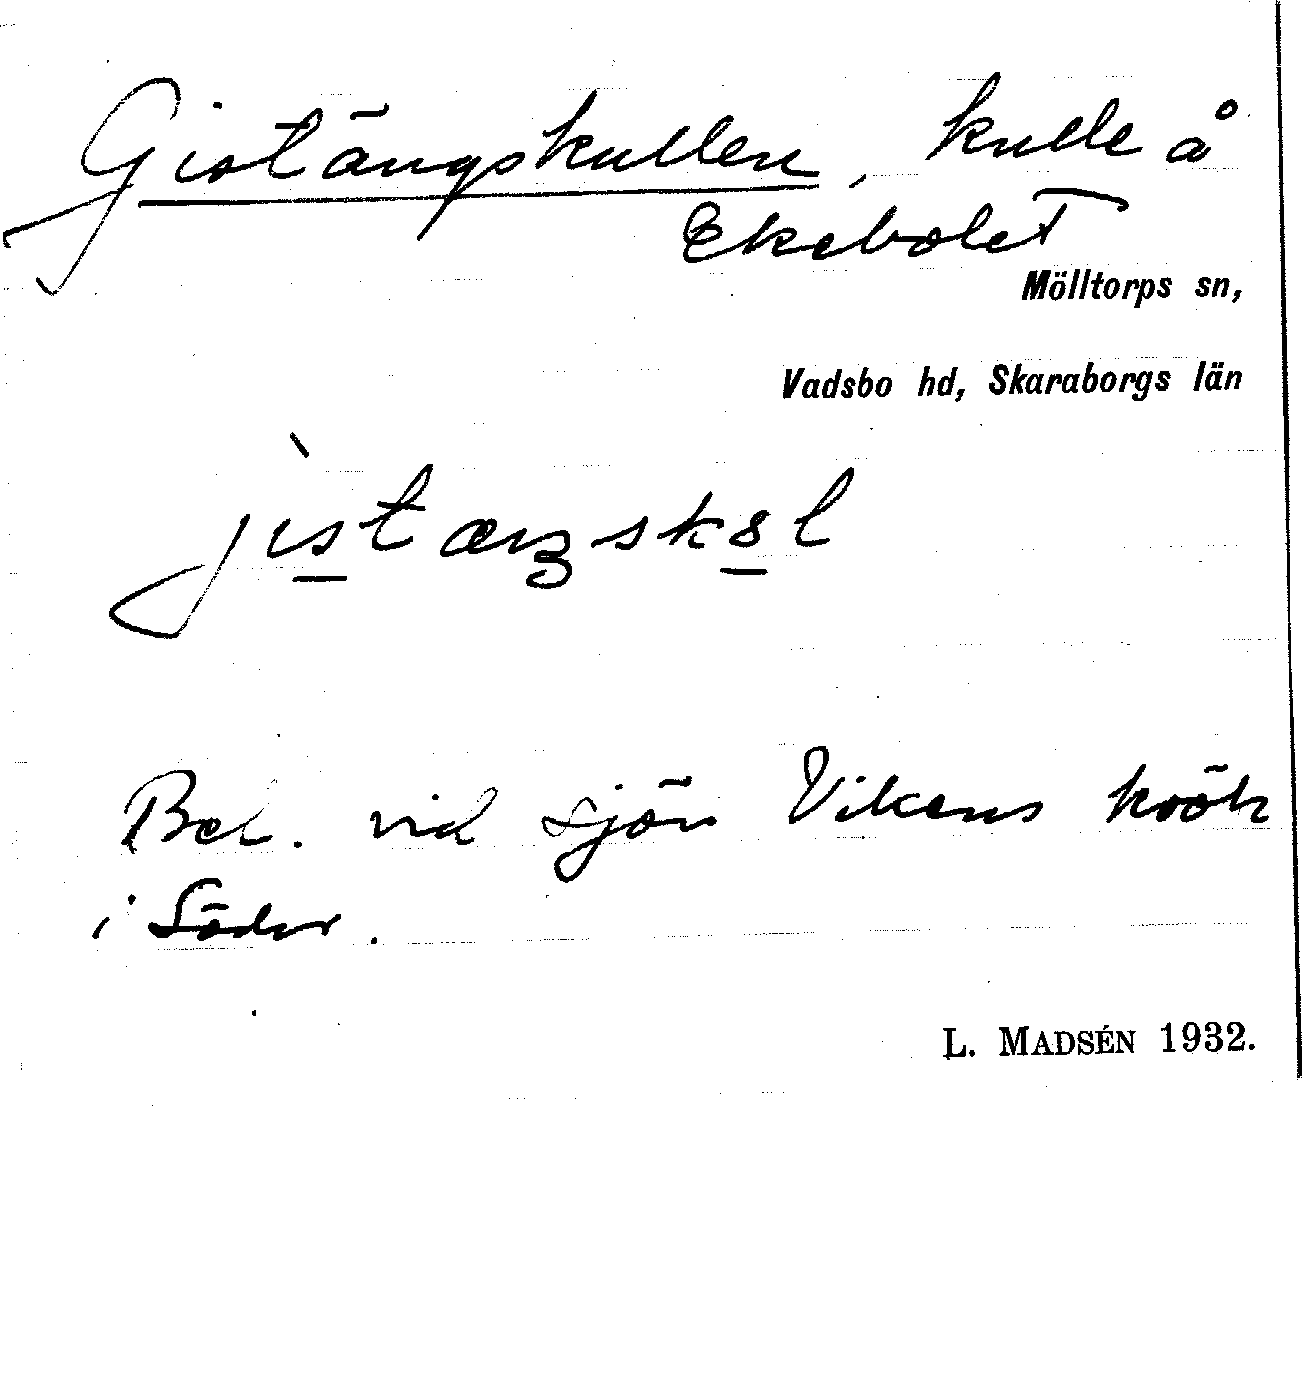 Gistängskullen, kulle å
Ekebolet
Mölltorps sn,
Vadsbo hd, Skaraborgs län
jìstæŋskȣl
Bel. vid sjön Vikens krök
i Söder.
L. MADSÉN 1932.